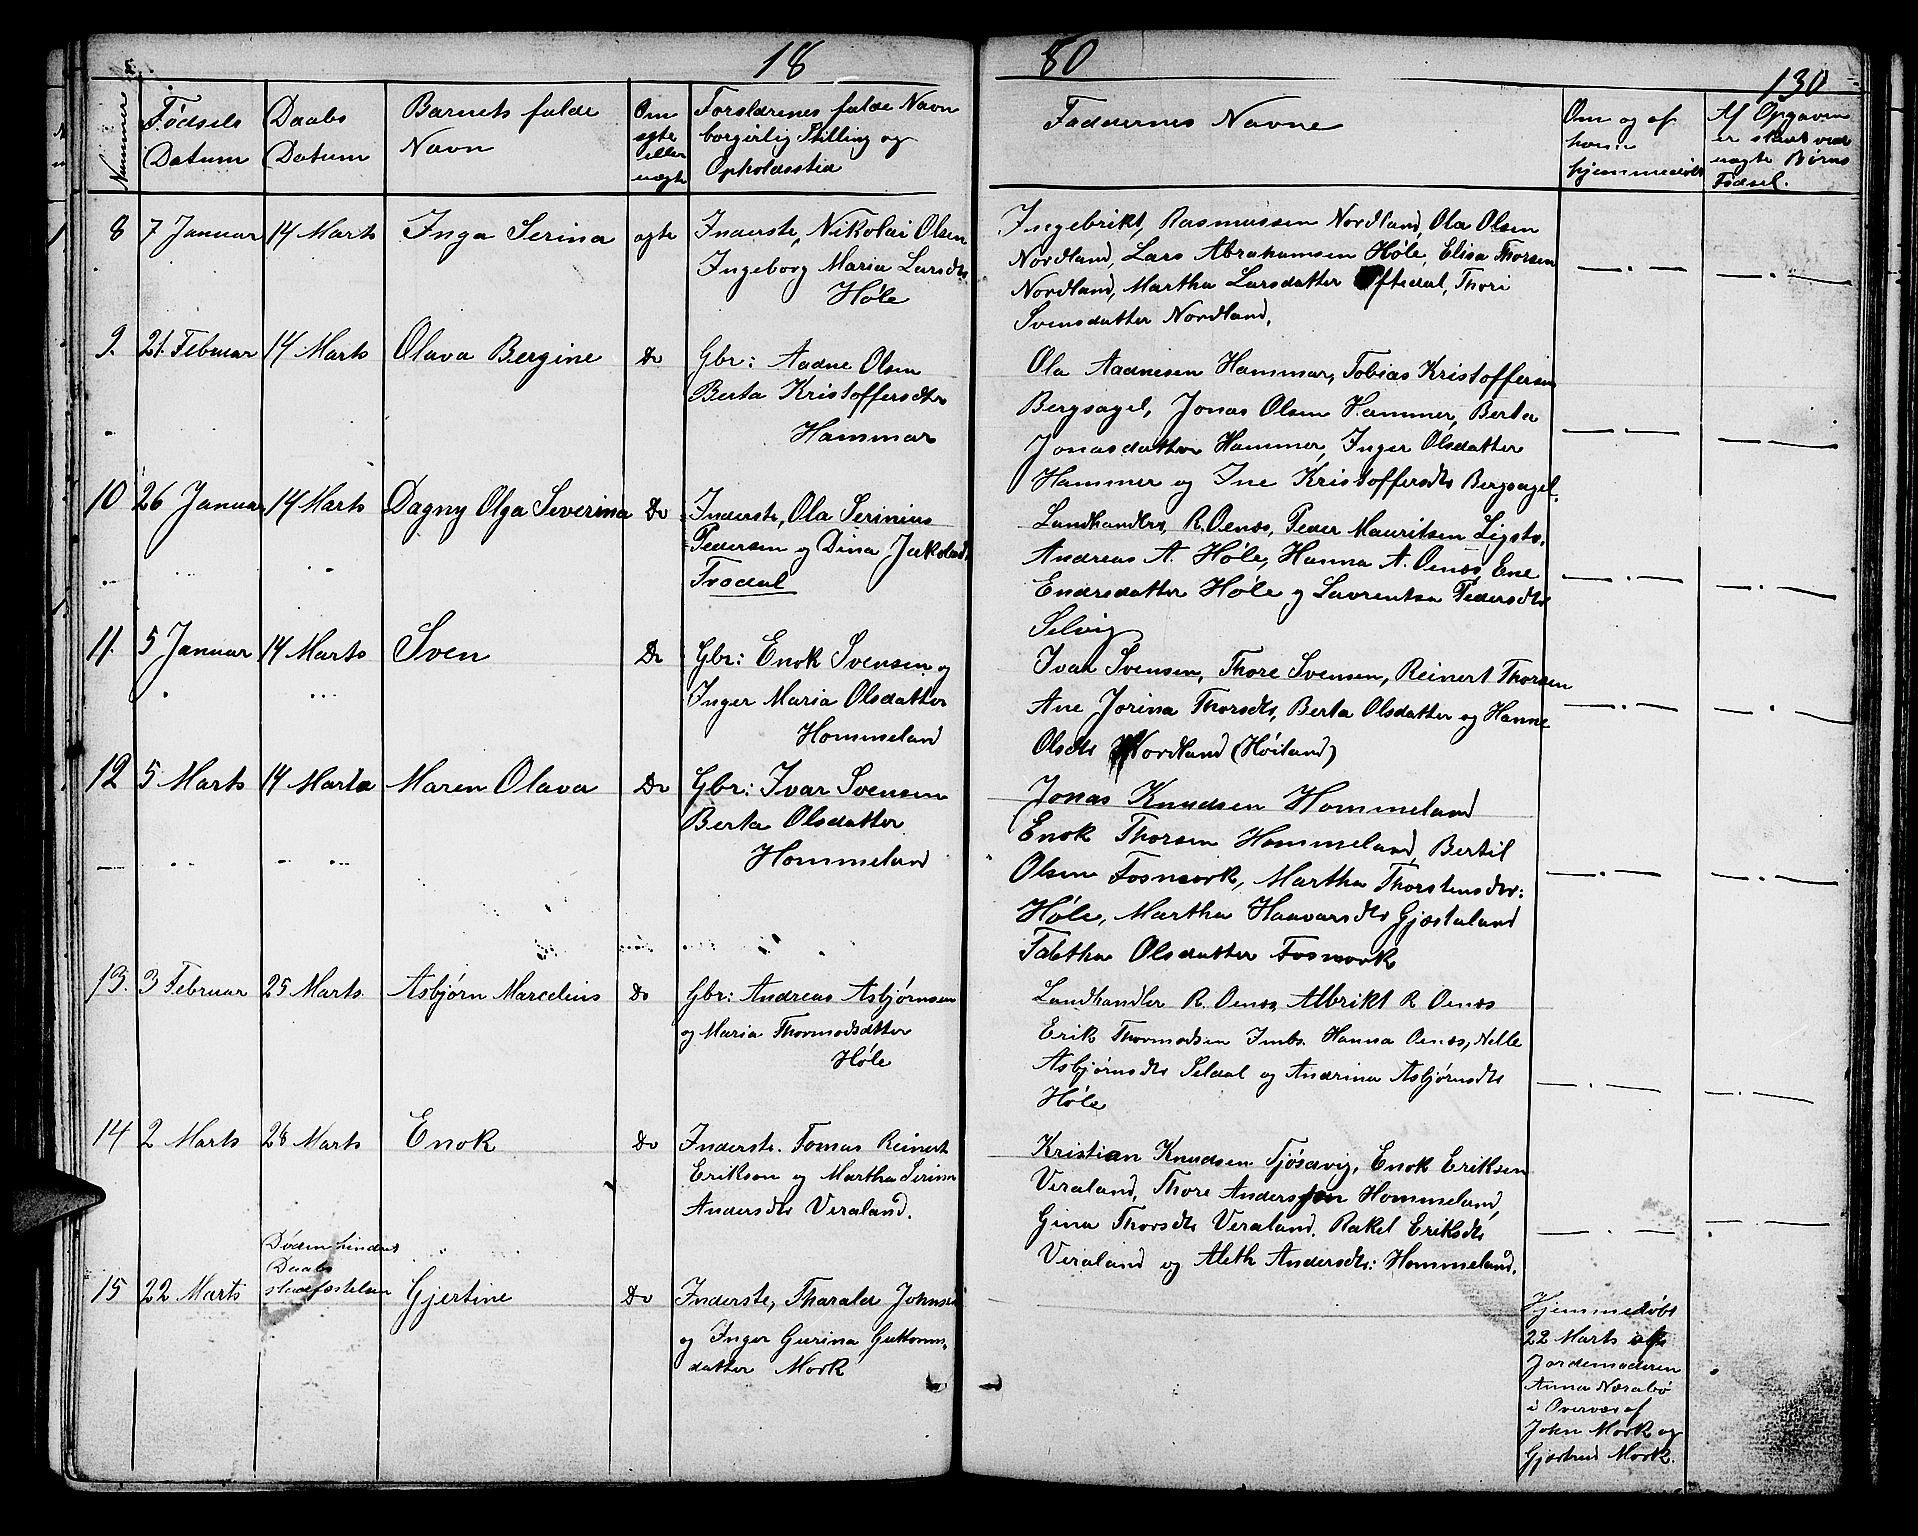 18
80
130
Nummer
Fødsels Datum
Daabs Datum
Barnets fulde Navn
Om ægte eller uægte
Forældrenes fulde Navn borgerlig Stilling og Opholdssted
Faddernes Navne
Om og af hvem hjemmedøbt
Af Opgaven er skeet ved uægte Børns Fødsel.
8 7 Januar 14 Marts Inga Serina ægte Inderste, Nikolai Olsen
Ingeborg Maria Larsdtr
Høle
Ingebrikt, Rasmussen Nordland, Ola Olsen
Nordland, Lars Abrahamsen Høle, Elisa Thorsen
Nordland, Martha Larsdatter Oftedal, Thori
Svensdatter Nordland,
9. 21. Februar 14 Marts Olava Bergine Do Gbr: Aadne Olsen
Berta Kristoffersdtr
Hammar
Ola Aadnesen Hammar, Tobias Kristoffersen
Bergsagel, Jonas Olsen Hammer, Berta
Jonasdatter Hammer, Inger Olsdatter
Hammer og Ine Kristoffersdtr Bergsagel.
10 26 Januar 14 Marts Dagny Olga Severina Do Inderste, Ola Serinius
Pedersen og Dina Jakobsd.
Tvedal
Landhandler, R. Oenæs, Peder Mauritsen
Andreas A. Høle, Hanna A. Oenæs, Ene
Endrsdatter Høle og Laurentsa Pedersdtr
Selvig
11. 5 Januar 14 Marts Sven Do Gbr: Enok Svensen og
Inger Maria Olsdatter
Hommeland
Ivar Svensen, Thore Svensen, Reinert Thorsen
Ane Jorina Thorsdtr, Berta Olsdatter og Hanne
Olsdtr Nordland (Høiland)
12 5 Marts 14 Marts Maren Olava Do Gbr: Ivar Svensen
Berta Olsdatter
Hommeland
Jonas Knudsen Hommeland
Enok Thorsen Hommeland, Bertil
Olsen Fosmork, Martha Thorstensdtr:
Høle, Martha Haavarsdtr Gjæstaland
Tabetha Olsdatter Fosmork
13. 3 Februar 25 Marts Asbjørn Marcelius Do Gbr: Andreas Asbjørnsen
og Maria Thormodsdatter
Høle
Landhandler R. Oenæs, Albrikt R Oenæs
Erik Thormodsen Imbs Hanna Oenæs, Nelle
Asbjørnsdtr Seldal og Andrina Asbjørnsdtr
Høle
14 2 Marts 28 Marts Enok Do Inderste. Tomas Reinert
Eriksen og Martha Serina
Andersdtr Veraland.
Kristian Knudsen Tjøsevig, Enok Eriksen
Veraland, Thore Andersen Hommeland,
Gina Thorsdtr Veraland. Rakel Eriksdtr
Veraland og Aleth Andersdtr: Hommeland.
Døden hindret
Daabs
stadfæstelsen
15 22 Marts Gjertine Do Inderste, Tharald Johnsen
og Inger Gurina Guttorms-
datter Mork
Hjemmedøbt
22 Marts af
Jordemoderen
Anna Næsabø
i Overvær af
John Mork og
Gjertrud Mork.